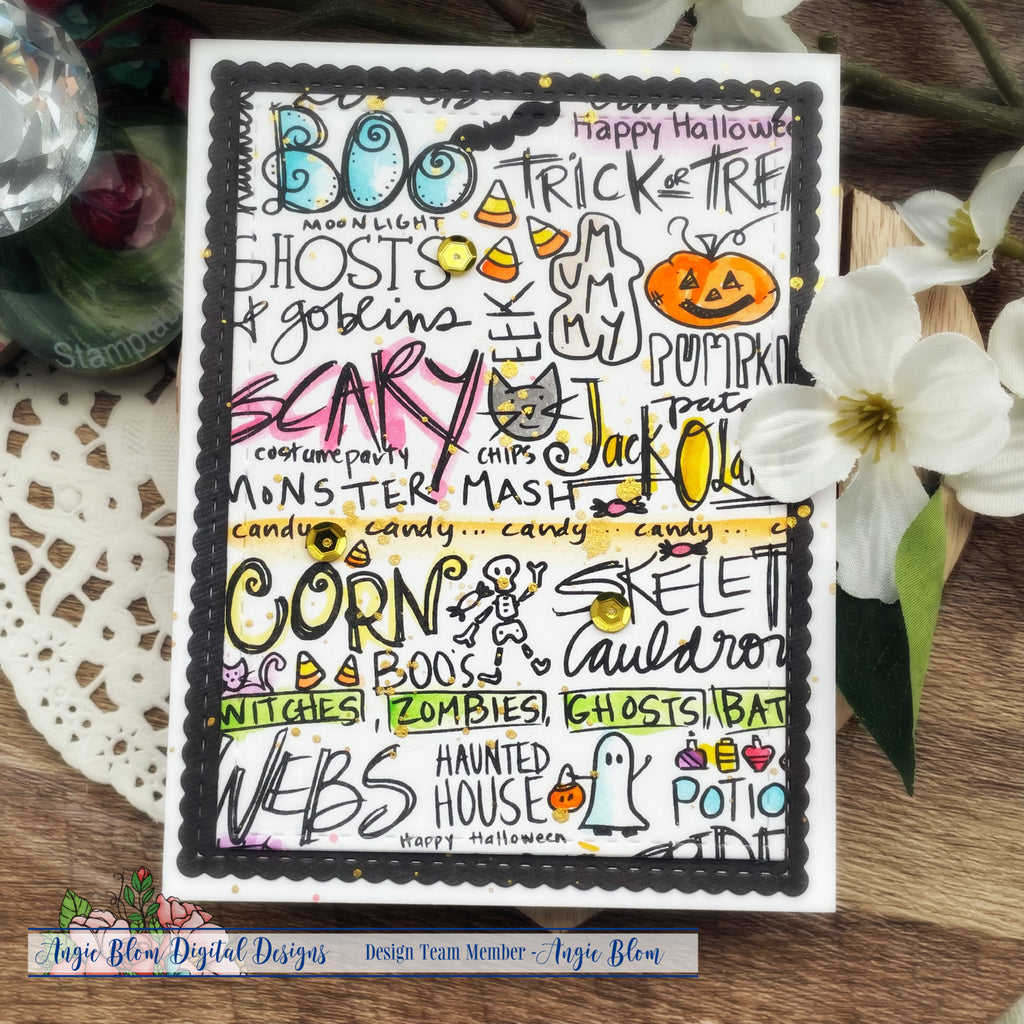 Happy Hallowe
BOO
TRICK OR TREA
MOONLIGHT
GHOSTS
& goblins
EEK
MUMMY
PUMPKI
SCARY
Jack OLa
costume party
CHIPS
MONSTER MASH
candy candy... candy candy... c
CORN
SKELET
Cauldron
BOO'S
WITCHES, ZOMBIES, GHOSTS, BAT
WEBS
HAUNTED
HOUSE
POTIO
Happy Halloween
Stampta
Angie Blom Digital Designs Design Team Member - Angie Blom